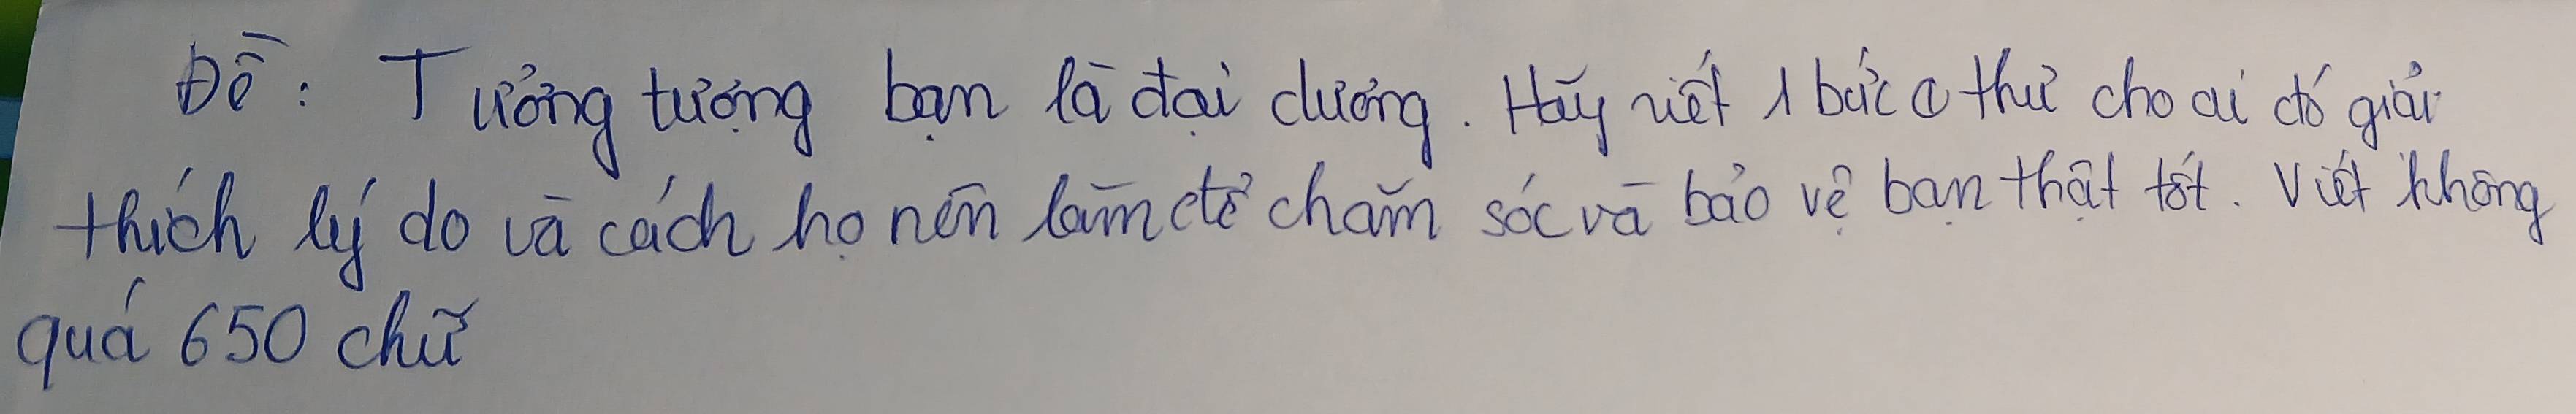 Đề: Tưởng tượng bạn là đại dương. Hãy viết 1 bức thư cho ai đó giải
thích lý do và cách họ nên làm để chăm sóc và bảo vệ bạn thật tốt. Viết không
quá 650 chữ